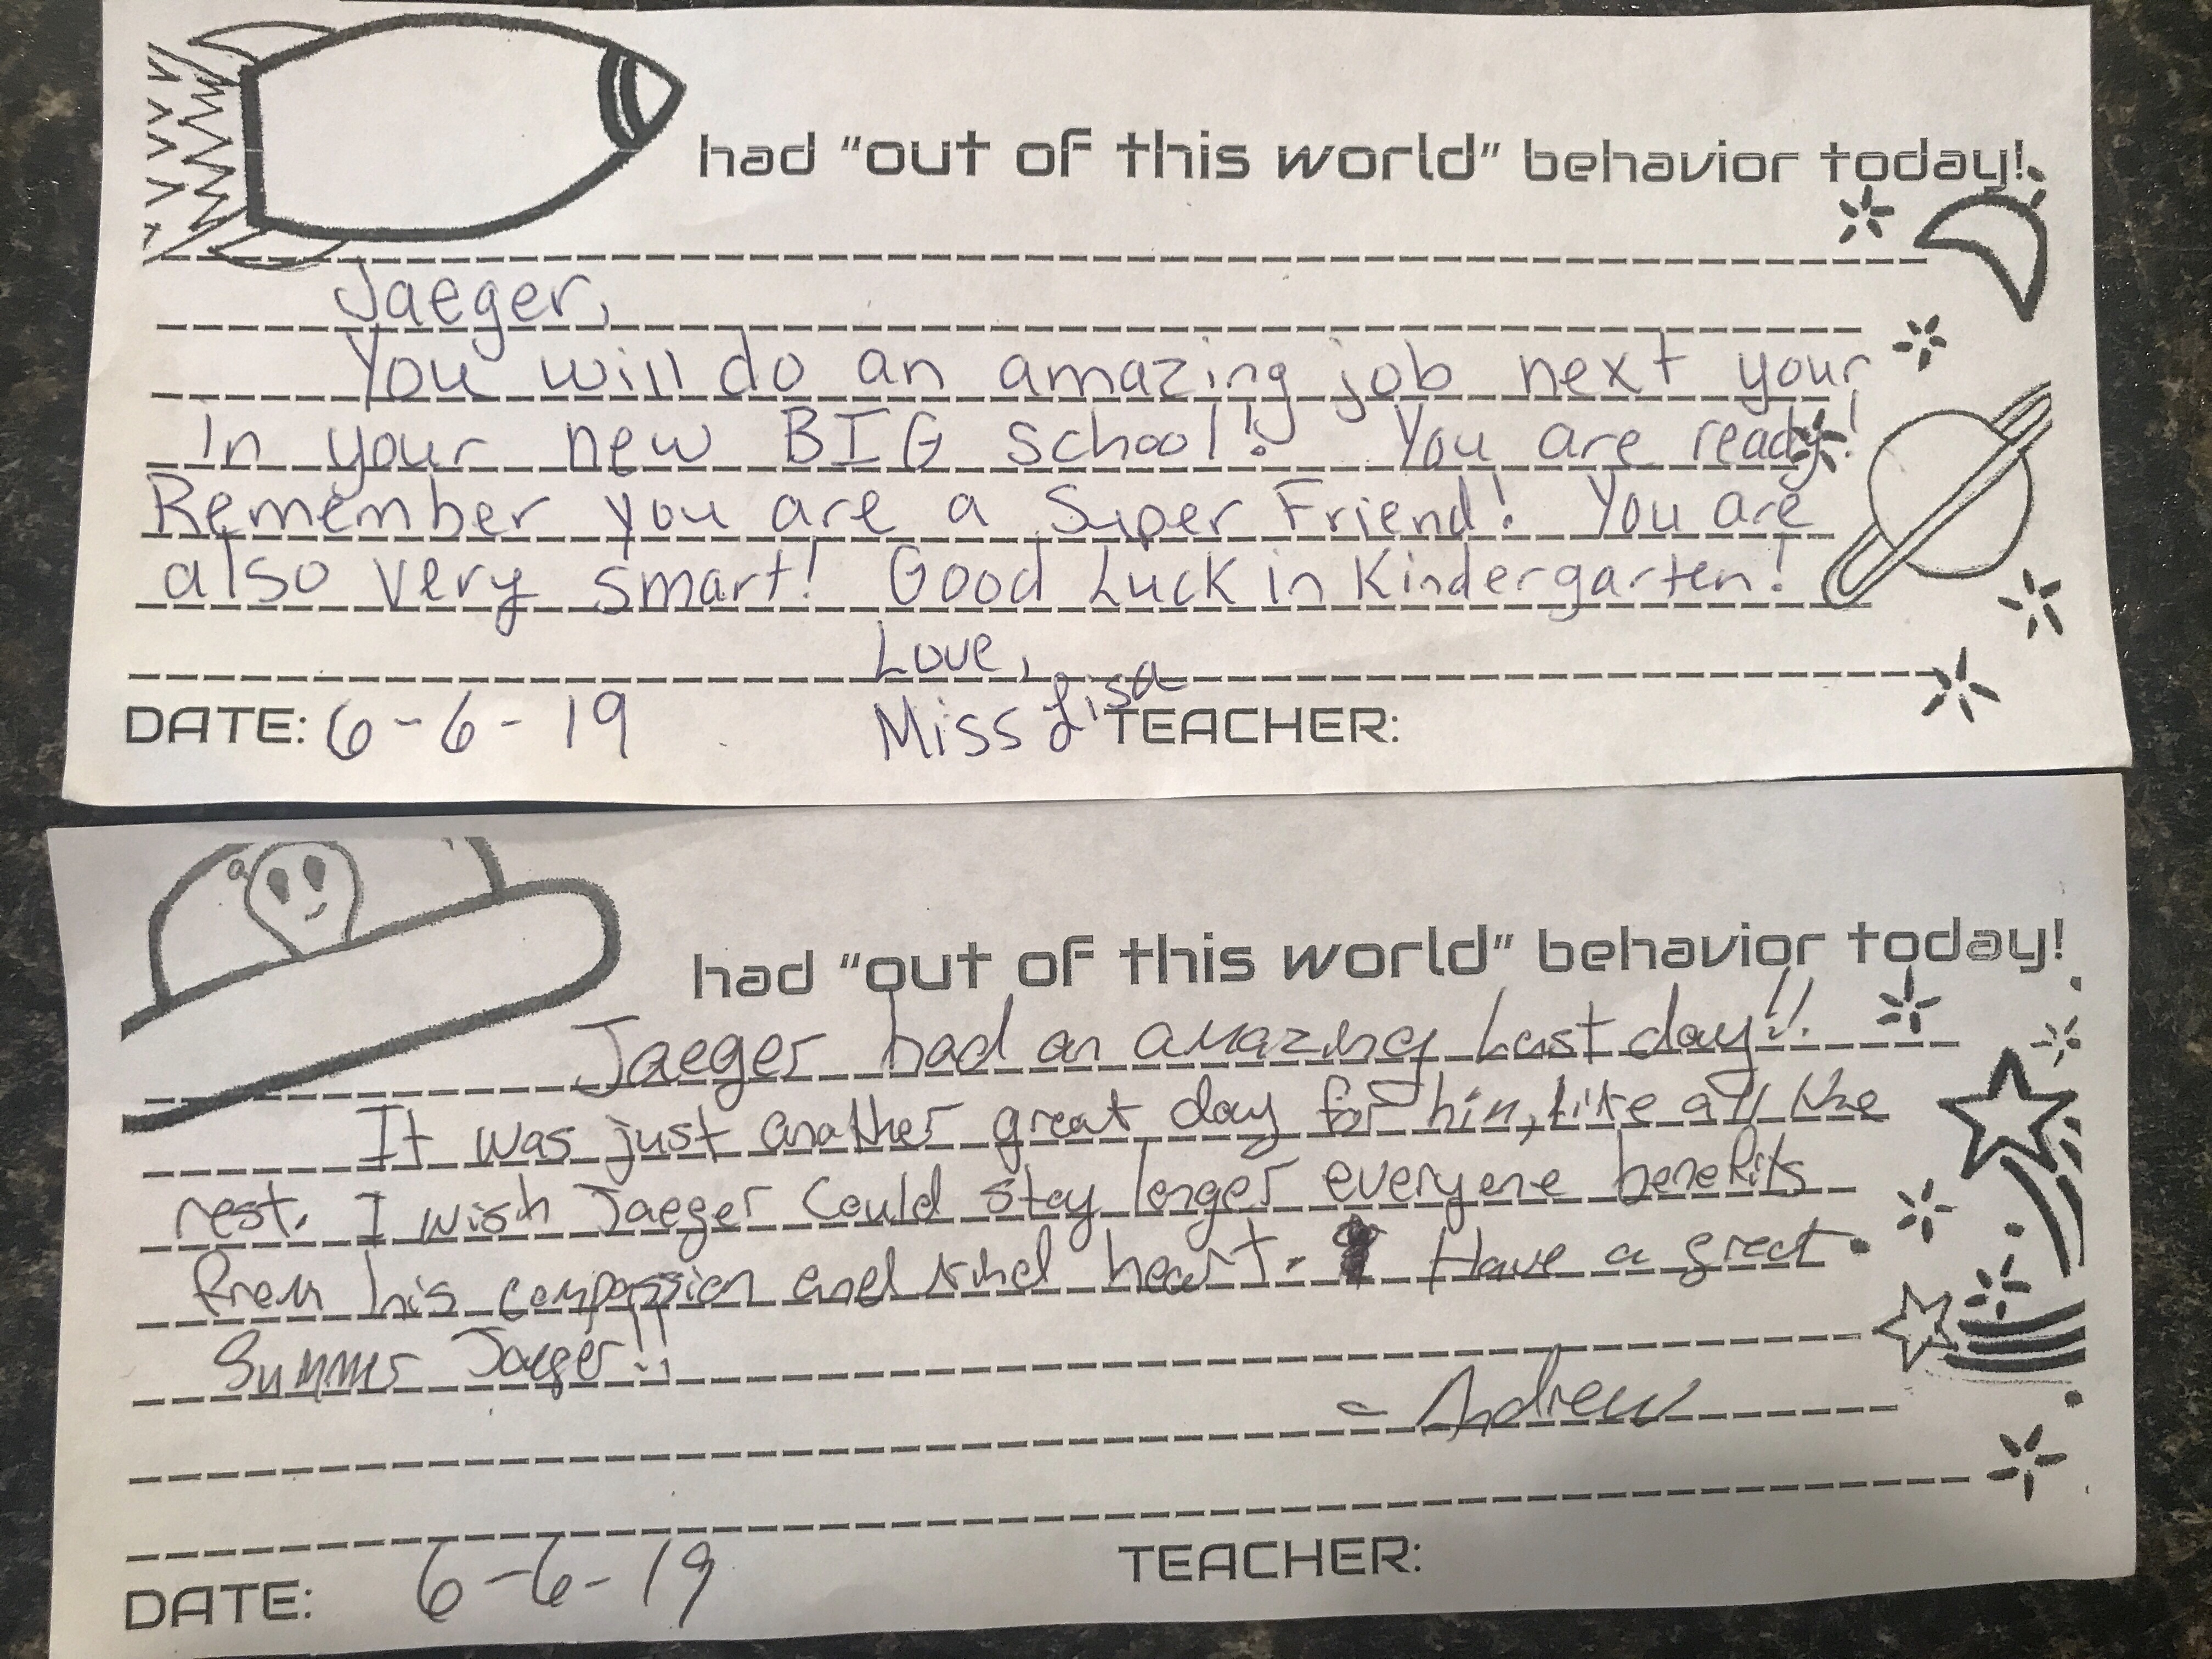 had "out of this world" behavior today!
Jaeger,
You will do an amazing job next your
in your new BIG school! You are ready!
Remember you are a Super Friend! You are
also very smart! Good Luck in Kindergarten!
Love,
Miss Lisa
DATE: 6-6-19 TEACHER:
had "out of this world" behavior today!
Jaeger had an amazing Last day!!
It was just another great day for him, like all the
rest. I wish Jaeger Could stay longer everyone benefits
from his compassion and kind heart. Have a great
Summer Jaeger!!
- Andrew
DATE: 6-6-19 TEACHER: